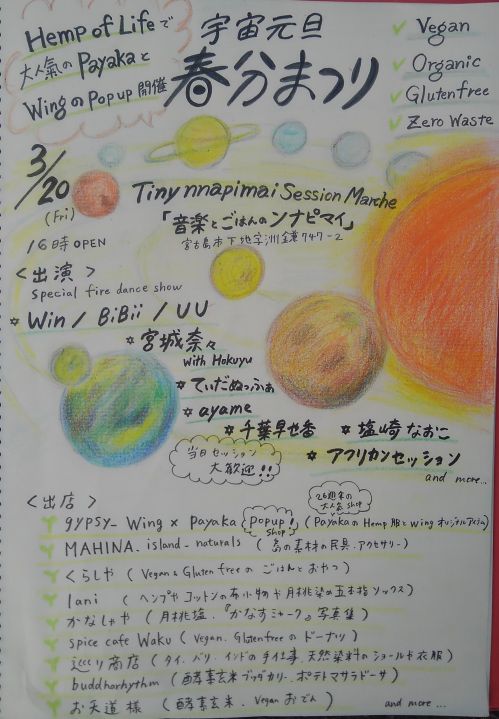 Hemp of Lifeで
大人気のPayakaと
WingのPop up開催
宇宙元旦
春分まつり
Vegan
Organic
Glutenfree
Zero Waste
3/20
(Fri)
16時OPEN
Tiny nnapimai Session Marche
「音楽とごはんのンナピマイ」
宮古島市下地字洲鎌747-2
<出演>
Special fire dance show
Win / BiBii / UU
宮城奈々
with Hokuyu
てぃだぬっふぁ
ayame
千葉早世香
塩崎なおこ
アフリカンセッション
and more..
当日セッション
大歓迎!!
<出店>
gypsy_Wing × Payaka
Popup!
Shop
大人気shop
(PayakaのHemp服とwingオリジナルアイテム)
MAHINA_island_naturals (島の素材の民具、アクセサリー)
くらしや (Vegan & Gluten freeのごはんとおやつ)
lani (ヘンプやコットンの布小物や月桃染の五本指ソックス)
かなしゃや (月桃塩、『かなすミャーク』写真集)
spice cafe Waku (Vegan、Glutenfreeのドーナツ)
巡り商店 (タイ、バリ、インドの手仕事、天然染料のショールや衣服)
buddharhythm (酵素玄米ブッダカリー、ポテトマサラドーサ)
お天道様 (酵素玄米、Veganおでん)
and more...